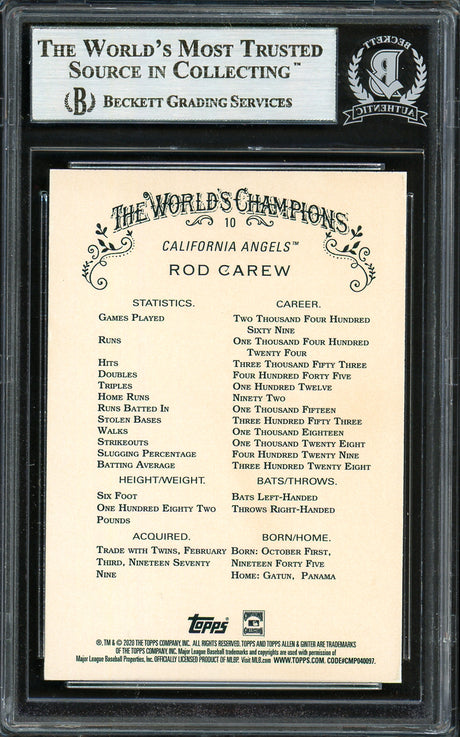 THE WORLD'S MOST TRUSTED
SOURCE IN COLLECTING™
B BECKETT GRADING SERVICES
BECKETT
B
AUTHENTIC
THE WORLD'S CHAMPIONS
10
CALIFORNIA ANGELS™
ROD CAREW
STATISTICS. CAREER.
GAMES PLAYED TWO THOUSAND FOUR HUNDRED
SIXTY NINE
RUNS ONE THOUSAND FOUR HUNDRED
TWENTY FOUR
HITS THREE THOUSAND FIFTY THREE
DOUBLES FOUR HUNDRED FORTY FIVE
TRIPLES ONE HUNDRED TWELVE
HOME RUNS NINETY TWO
RUNS BATTED IN ONE THOUSAND FIFTEEN
STOLEN BASES THREE HUNDRED FIFTY THREE
WALKS ONE THOUSAND EIGHTEEN
STRIKEOUTS ONE THOUSAND TWENTY EIGHT
SLUGGING PERCENTAGE FOUR HUNDRED TWENTY NINE
BATTING AVERAGE THREE HUNDRED TWENTY EIGHT
HEIGHT/WEIGHT. BATS/THROWS.
SIX FOOT BATS LEFT-HANDED
ONE HUNDRED EIGHTY TWO THROWS RIGHT-HANDED
POUNDS
ACQUIRED. BORN/HOME.
TRADE WITH TWINS, FEBRUARY BORN: OCTOBER FIRST,
THIRD, NINETEEN SEVENTY NINETEEN FORTY FIVE
NINE HOME: GATUN, PANAMA
Topps
CHAMPIONS
COLLECTING
®, TM & © 2020 THE TOPPS COMPANY, INC. ALL RIGHTS RESERVED. TOPPS AND TOPPS ALLEN & GINTER ARE TRADEMARKS
OF THE TOPPS COMPANY, INC. Major League Baseball trademarks and copyrights are used with permission of
Major League Baseball Properties, Inc. OFFICIALLY LICENSED PRODUCT OF MLBP. Visit MLB.com WWW.TOPPS.COM. CODE#CMP040097.